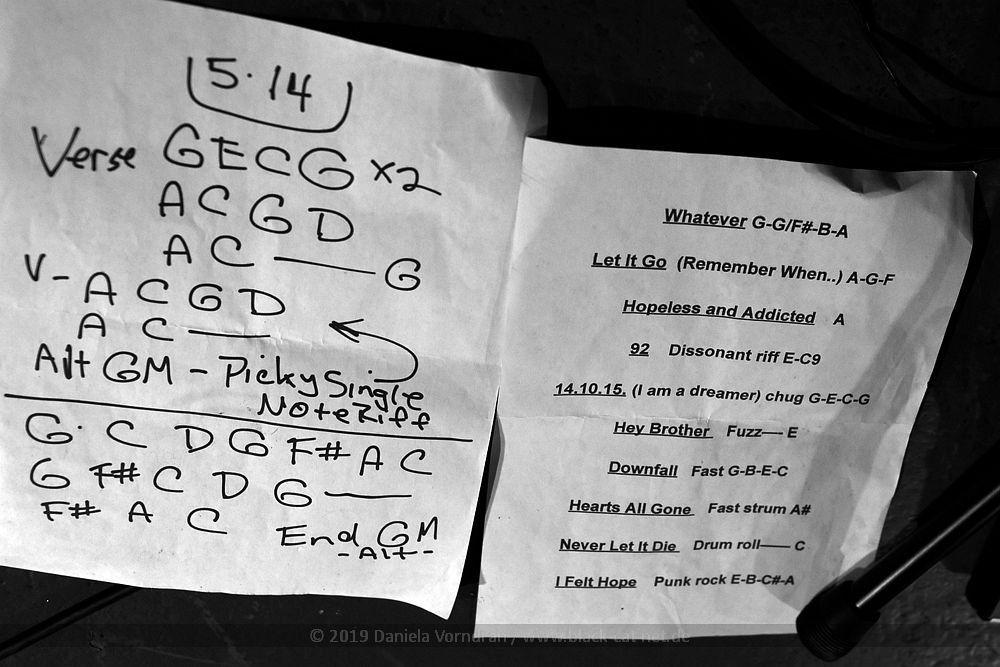 15.14
Verse GECG x2
A C G D
A C — G
V- A C G D
A C —
Alt GM - Picky Single
Note Riff
G. C D G F# A C
G F# C D G —
F# A C End GM
-Alt-
Whatever G-G/F#-B-A
Let It Go (Remember When..) A-G-F
Hopeless and Addicted A
92 Dissonant riff E-C9
14.10.15. (I am a dreamer) chug G-E-C-G
Hey Brother Fuzz— E
Downfall Fast G-B-E-C
Hearts All Gone Fast strum A#
Never Let It Die Drum roll— C
I Felt Hope Punk rock E-B-C#-A
© 2019 Daniela Vorndran / www.black-cat-net.de